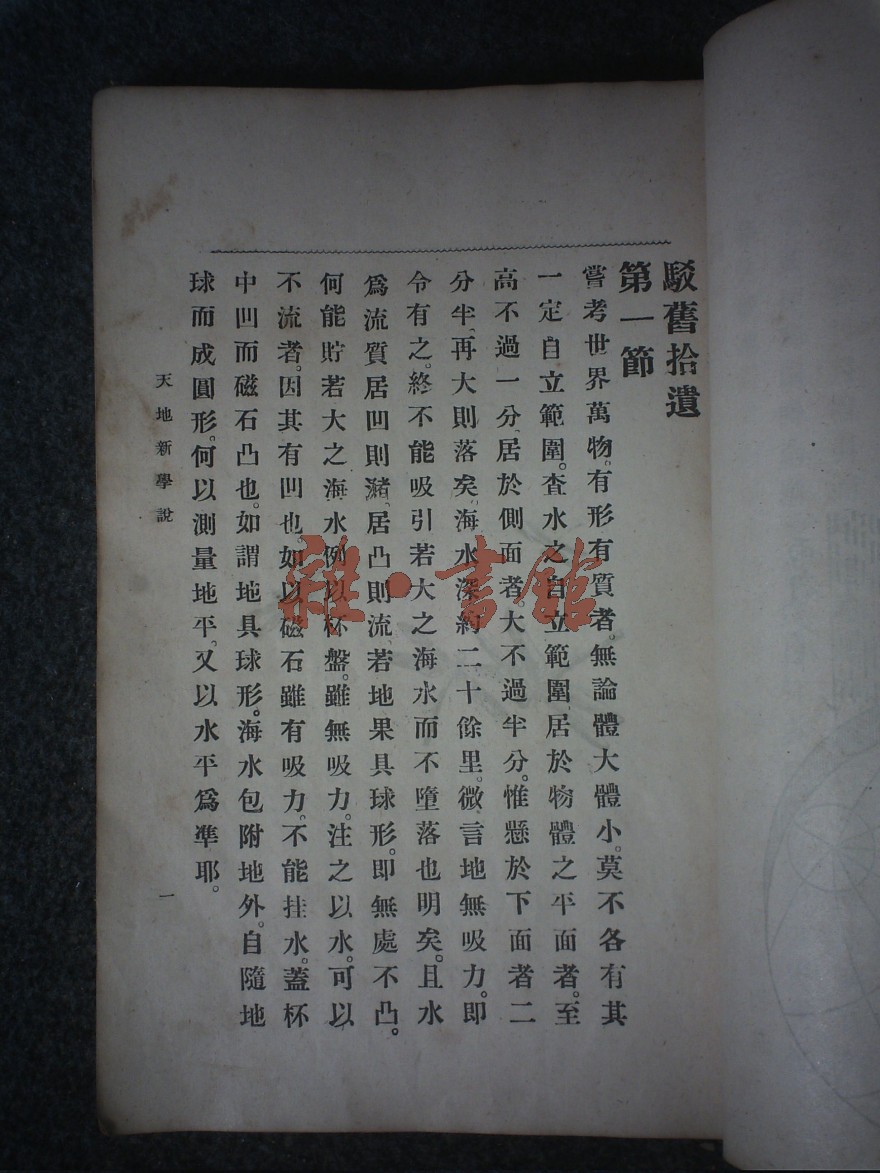 駁舊拾遺
第一節
嘗考世界萬物。有形有質者。無論體大體小。莫不各有其
一定自立範圍。查水之自立範圍、居於物體之平面者。至
高不過一分、居於側面者。大不過半分。惟懸於下面者二
分半、再大則落矣、海水深約二十餘里。微言地無吸力。即
令有之。終不能吸引若大之海水而不墮落也明矣。且水
爲流質居凹則瀦、居凸則流、若地果具球形。即無處不凸。
何能貯若大之海水、例以杯盤。雖無吸力。注之以水。可以
不流者。因其有凹也。如以磁石雖有吸力。不能挂水。蓋杯
中凹而磁石凸也。如謂地具球形。海水包附地外。自隨地
球而成圓形。何以測量地平。又以水平爲準耶。
天地新學說
一
雜·書館